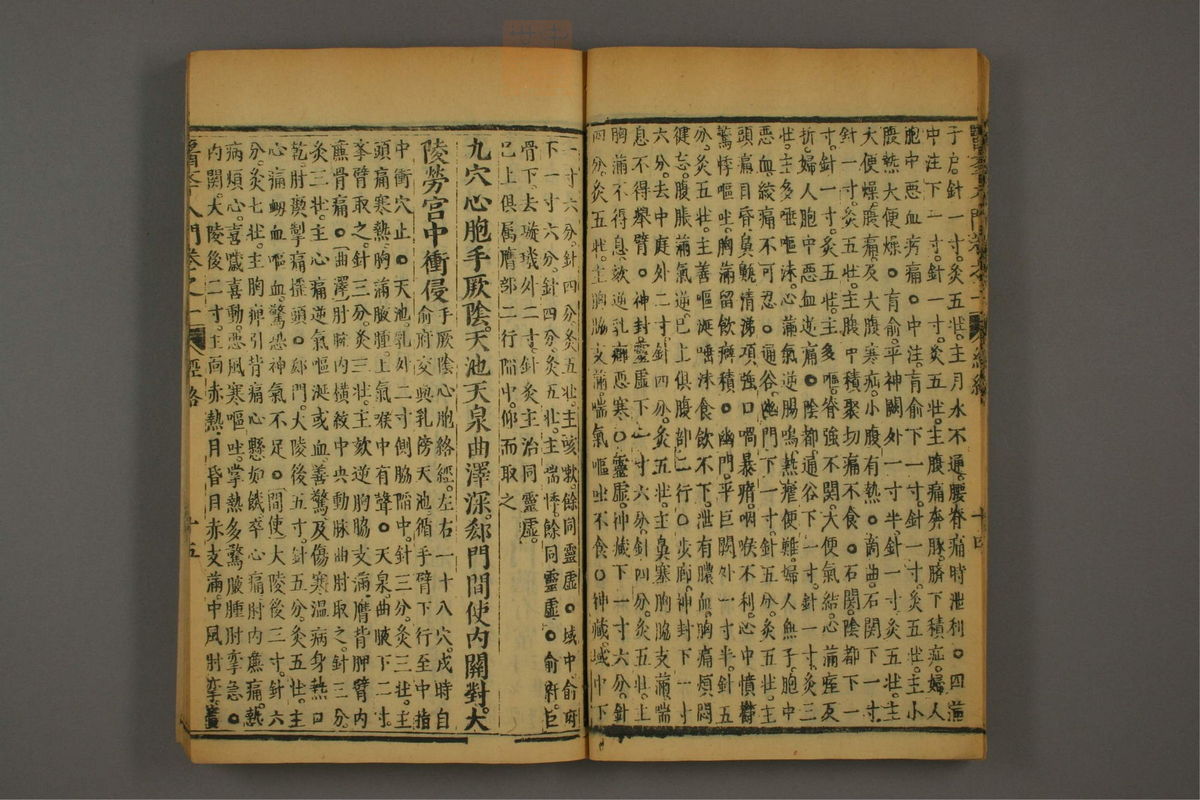 子户。針一寸。灸五壯。主月水不通。腰脊痛時泄利。〇四滿
中注下一寸。針一寸。灸五壯。主腹痛奔豚。臍下積疝。婦人
胞中惡血㽲痛。〇中注。肓俞下一寸。針一寸。灸五壯。主小
腹熱大便燥。〇肓俞。平神闕外一寸半。針一寸。灸五壯。主
大便燥。腹痛及大腹寒疝。小腹有熱。〇啇曲。石関下一寸。
針一寸。灸五壯。主腹中積聚切痛不食。〇石関。陰都下一
寸。針一寸。灸五壯。主多嘔。脊強不開。大便氣結。心滿痙反
折。婦人胞中惡血逆痛。〇陰都。通谷下一寸。針一寸。灸三
壯。主多唾嘔沫。心滿氣逆。腸鳴熱瘧便難。婦人無子。胞中
惡血絞痛不可忍。〇通谷。幽門下一寸。針五分。灸五壯。主
頭痛目昏。鼻鼽清涕。項強口喎暴瘖。咽喉不利。心中憒鬱
驚悸嘔吐。胸滿留飲癖積。〇幽門。平巨闕外一寸半。針五
分。灸五壯。主善嘔涎唾沫。食飲不下。泄有膿血。胸痛煩悶
健忘。腹脹滿氣逆。已上俱腹部二行。〇步廊。神封下一寸
六分。去中庭外二寸。針四分。灸五壯。主鼻塞胸脇支滿喘
息不得舉臂。〇神封。靈虛下一寸六分。針四分。灸五壯。主
胸滿不得息。欬逆乳癰惡寒。〇靈虛。神藏下一寸六分。針
四分。灸五壯。主胸脇支滿。喘氣嘔吐不食。〇神藏。彧中下
一寸六分。針四分。灸五壯。主咳嗽。餘同靈虛。〇彧中。俞府
下一寸六分。針四分。灸五壯。主喘悸。餘同靈虛。〇俞府。巨
骨下。去璇璣外二寸。針灸主治同靈虛。
已上俱屬膺部二行陷中。仰而取之
九穴心胞手厥陰。天池天泉曲澤深。郄門間使內關對。大
陵勞宮中衝侵手厥陰心胞絡經。左右一十八穴。戌時自
俞府交與乳傍天池。循手臂下行至中指
中衝穴止。〇天池。乳外二寸側脇陷中。針三分。灸三壯。主
頭痛寒熱。胸滿腋腫。上氣喉中有聲。〇天泉。曲腋下二寸
舉臂取之。針三分。灸三壯。主欬逆胸脇支滿。膺背胛臂內
廉骨痛。〇曲澤。肘腕內橫紋中央動脉。曲肘取之。針三分
灸三壯。主心痛逆氣嘔涎或血。善驚及傷寒溫病身熱口
乾。肘瘈掣痛搖頭。〇郄門。大陵後五寸。針五分。灸五壯。主
心痛衄血嘔血。驚恐神氣不足。〇間使。大陵後三寸。針六
分。灸七壯。主胸痺引背痛。心懸如饑。卒心痛。肘內廉痛。熱
病煩心。喜噦喜動。惡風寒嘔吐。掌熱多驚。腋腫肘攣急。〇
內関。大陵後二寸。主面赤熱。目昏目赤。支滿。中風肘攣。
醫學入門卷之一 經絡 十四
醫學入門卷之一 經絡 十五